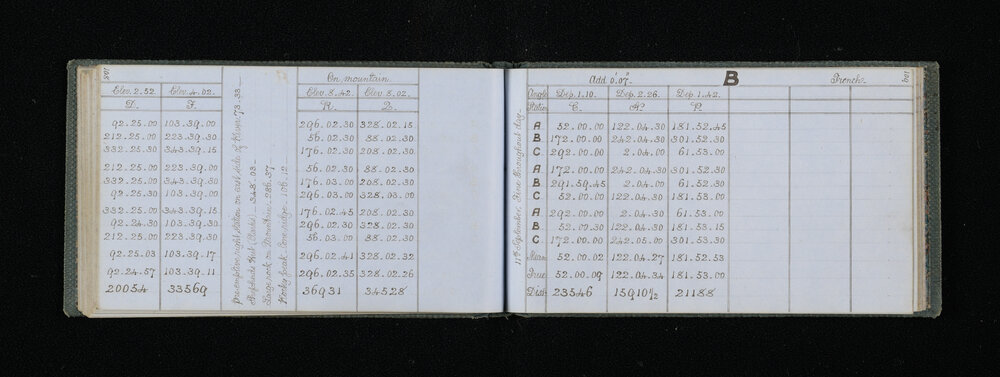 On mountain.
Elev. 2.52. Elev. 4.02. Elev. 8.42. Elev. 8.02.
D. F. R. L.
92.25.00 103.39.00 296.02.30 328.02.15
212.25.00 223.39.30 56.02.30 88.02.30
332.25.30 343.39.15 176.02.30 208.02.30
212.25.00 223.39.00 56.02.30 88.02.30
332.25.00 343.39.30 176.03.00 208.02.30
92.25.30 103.39.00 296.03.00 328.03.00
332.25.00 343.39.15 176.02.45 208.02.30
92.24.30 103.39.30 296.02.30 328.02.30
212.25.00 223.39.30 56.03.00 88.02.30
92.25.03 103.39.17 296.02.41 328.02.32
92.24.57 103.39.11 296.02.35 328.02.26
20054 33569 36931 34528
station on east side of River 73.33
348.03
Large rock on Mountain 286.37
Rocky peak 106.12
11th September, Fine throughout day.
Add 0'.07" B French.
Angle Dep. 1.10. Dep. 2.26. Dep. 1.42.
Station C.
A 52.00.00 122.04.30 181.52.45
B 172.00.00 242.04.30 301.52.30
C 292.00.00 2.04.00 61.53.00
A 172.00.00 242.04.30 301.52.30
B 291.59.45 2.04.00 61.52.30
C 52.00.00 122.04.30 181.53.00
A 292.00.00 2.04.30 61.53.00
B 52.00.30 122.04.30 181.53.15
C 172.00.00 242.05.00 301.53.30
Mean 52.00.02 122.04.27 181.52.53
True 52.00.09 122.04.34 181.53.00
Dist 23546 15910½ 21188